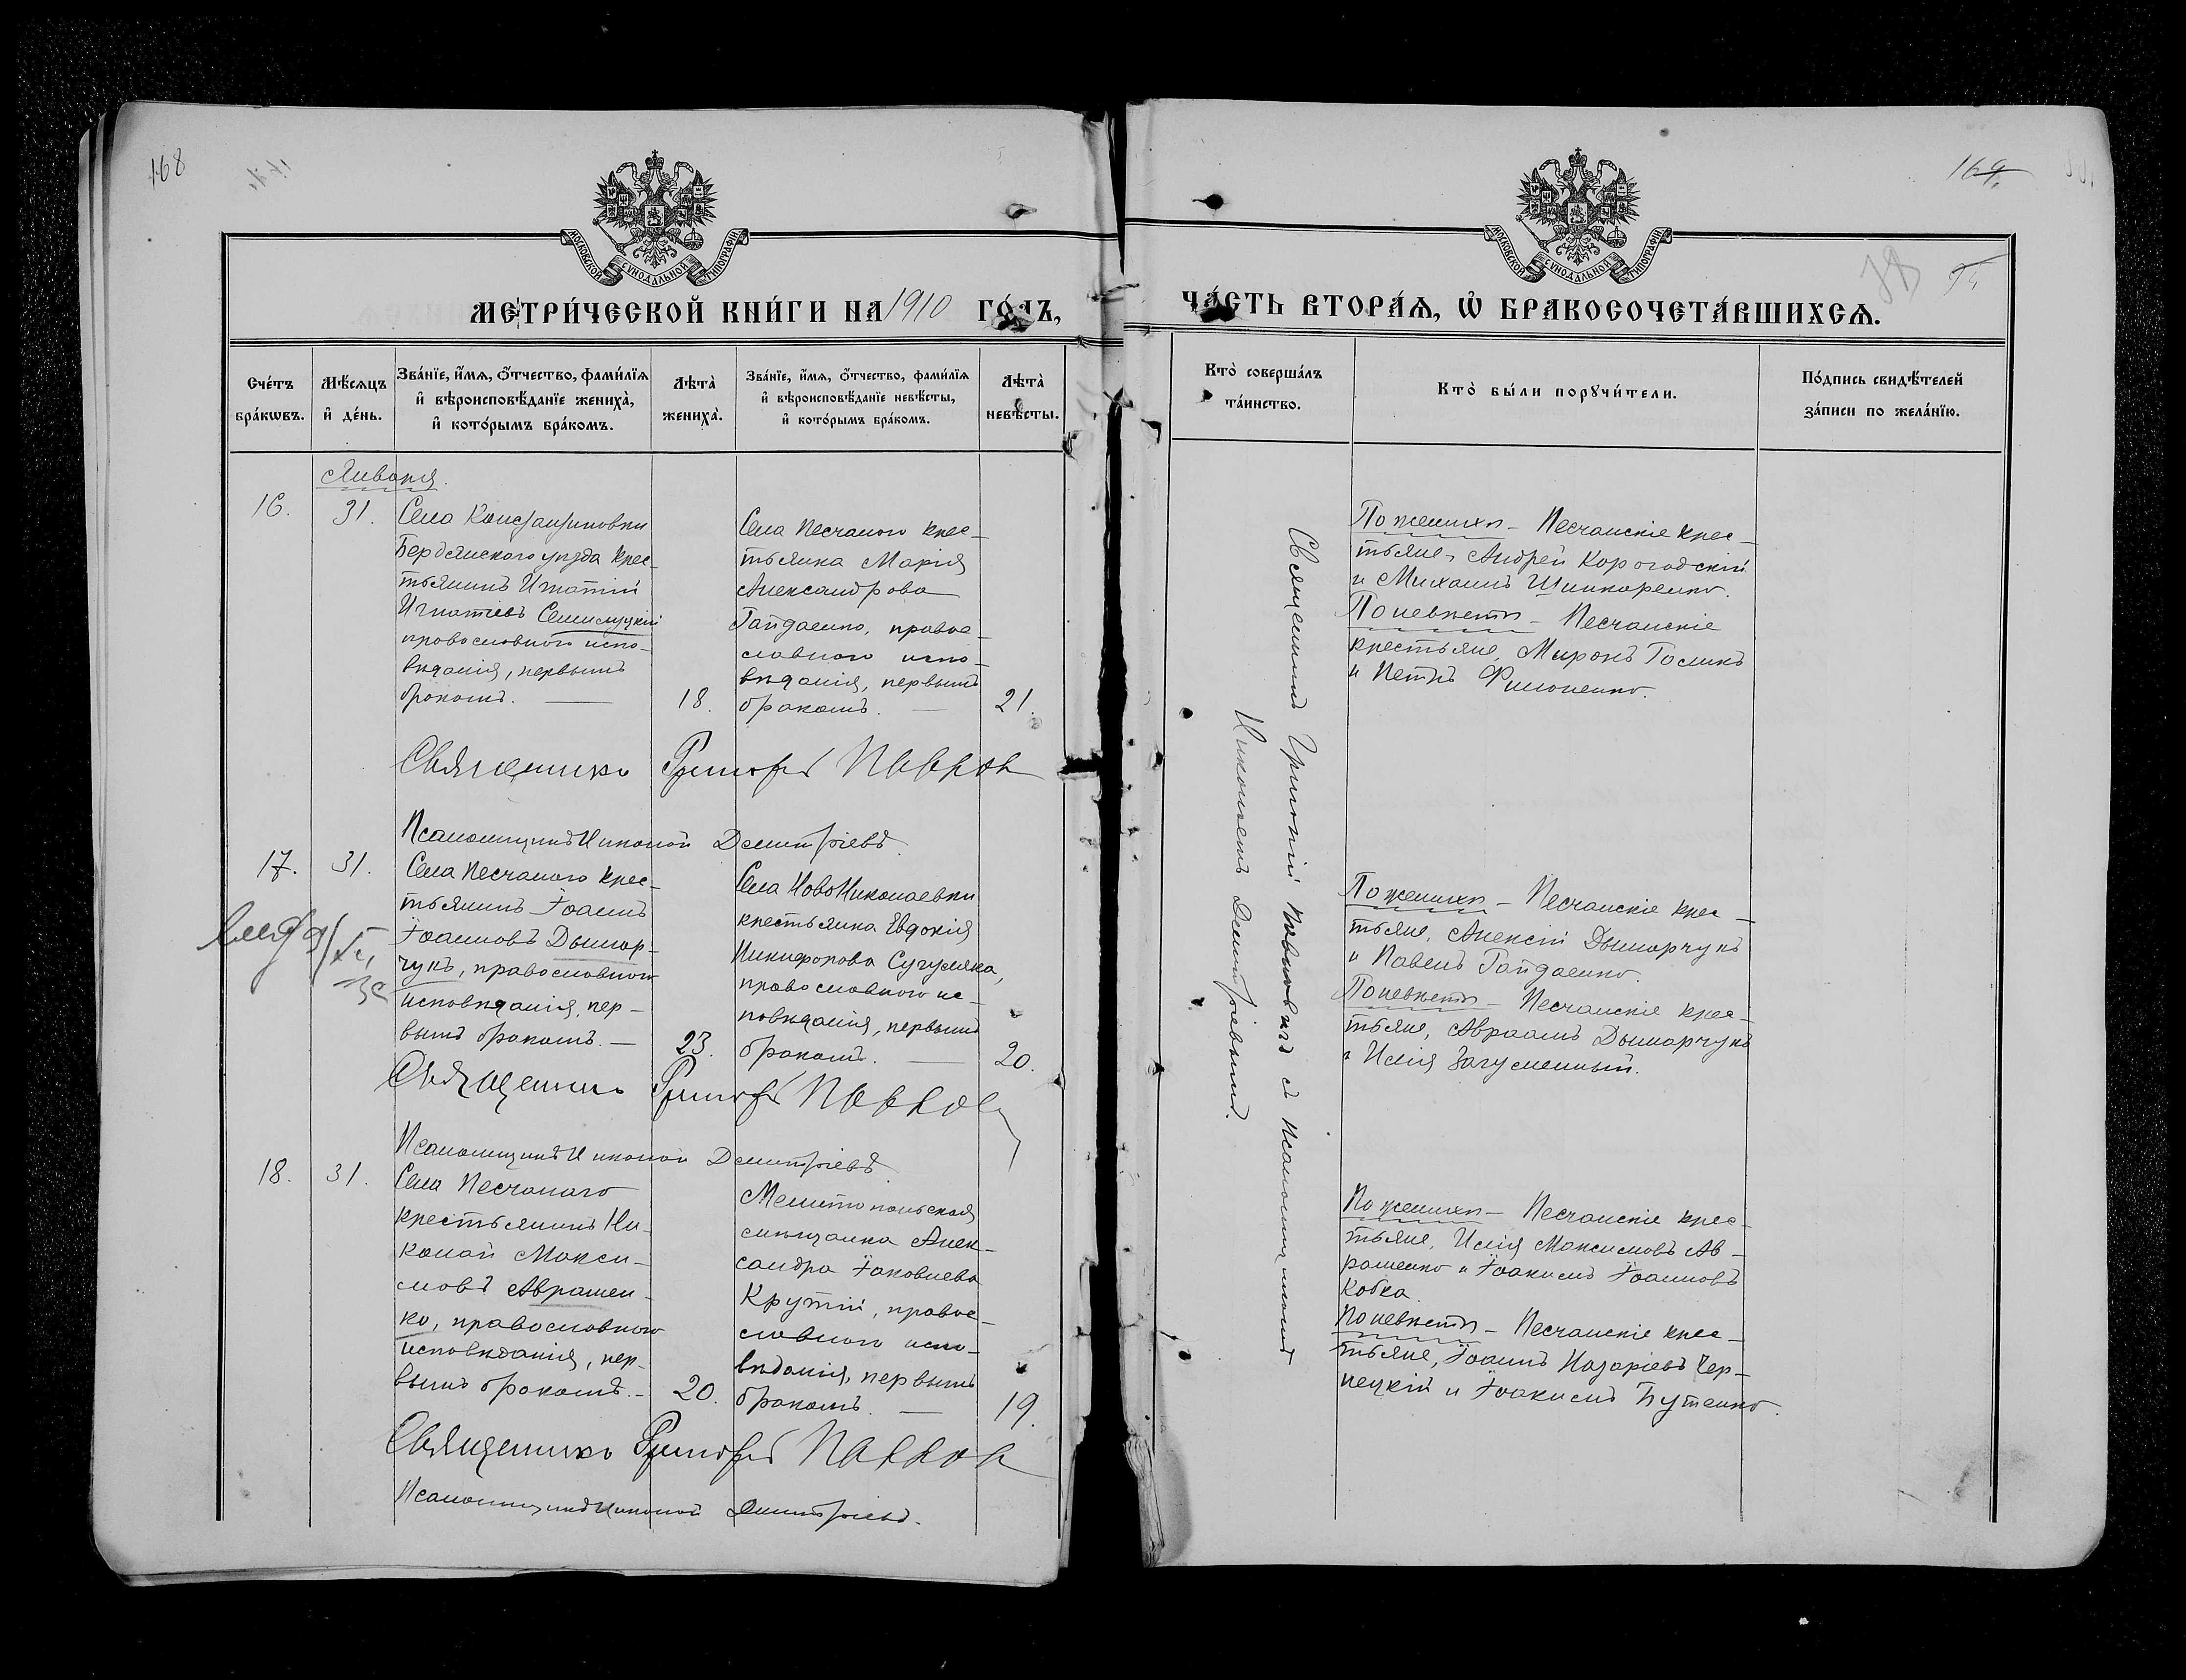 168
МОСКОВСКОЙ СѴНОДАЛЬНОЙ ТИПОГРАФІИ
МЕТРИ́ЧЕСКОЙ КНИ́ГИ НА 1910 ГО́ДЪ,
Сче́тъ бра́кѡвъ.
Мѣ́сѧцъ и҆ де́нь.
Зва́нїе, и҆́мѧ, ѻ҆́тчество, фами́лїѧ и҆ вѣроисповѣ́данїе жениха̀, и҆ кото́рымъ бра́комъ.
Лѣта̀ жениха̀.
Зва́нїе, и҆́мѧ, ѻ҆́тчество, фами́лїѧ и҆ вѣроисповѣ́данїе невѣ́сты, и҆ кото́рымъ бра́комъ.
Лѣта̀ невѣ́сты.
Января.
16.
31.
Села Константиновки
Бердянскаго уѣзда крес-
тьянинъ Игнатій
Игнатіевъ Семилуцкій
православнаго испо-
вѣданія, первымъ
бракомъ.
18.
Села Песчаного крес-
тьянка Марія
Александрова
Гайдаенко, право-
славнаго испо-
вѣданія, первымъ
бракомъ.
21.
Священникъ Григорій
Псаломщикъ Николай Димитріевъ.
17.
31.
Села Песчаного крес-
тьянинъ Іоаннъ
Іоанновъ Дымар-
чукъ, православнаго
исповѣданія, пер-
вымъ бракомъ.
23.
Села НовоНиколаевки
крестьянка Евдокія
Никифорова Сугуляка,
православнаго ис-
повѣданія, первымъ
бракомъ.
20.
Священникъ Григорій
Псаломщикъ Николай Димитріевъ.
18.
31.
Села Песчанаго
крестьянинъ Ни-
колай Макси-
мовъ Авраmен-
ко, православнаго
исповѣданія, пер-
вымъ бракомъ.
20.
Мелитопольская
мѣщанка Алек-
сандра Іаковлева
Крутій, право-
славнаго испо-
вѣданія, первымъ
бракомъ.
19.
Священникъ Григорій
Псаломщикъ Николай Димитріевъ.
169.
МОСКОВСКОЙ СѴНОДАЛЬНОЙ ТИПОГРАФІИ
ЧА́СТЬ ВТОРА́Ѧ, Ѡ҆ БРАКОСОЧЕТА́ВШИХСѦ.
Кто̀ соверша́лъ та́инство.
Кто̀ бы́ли порꙋчи́тели.
По́дпись свидѣ́телей за́писи по жела́нїю.
Священникъ Григорій с псаломщикомъ
Николаемъ Димитріевымъ.
По женихѣ – Песчанскіе крес-
тьяне, Андрей Корогодскій
и Михаилъ Шинкаренко.
По невѣстѣ – Песчанскіе
крестьяне, Миронъ Голикъ
и Петръ Филоненко.
По женихѣ – Песчанскіе крес-
тьяне, Алексій Дымарчукъ
и Павелъ Гайдаенко.
По невѣстѣ – Песчанскіе крес-
тьяне, Авраамъ Дымарчукъ
и Илія Загуменный.
По женихѣ – Песчанскіе крес-
тьяне, Илія Максимовъ Ав-
раменко и Іоакимъ Іоанновъ
Кобка.
По невѣстѣ – Песчанскіе крес-
тьяне, Іоаннъ Назаріевъ Чер-
нецкій и Іоакимъ Бутенко.